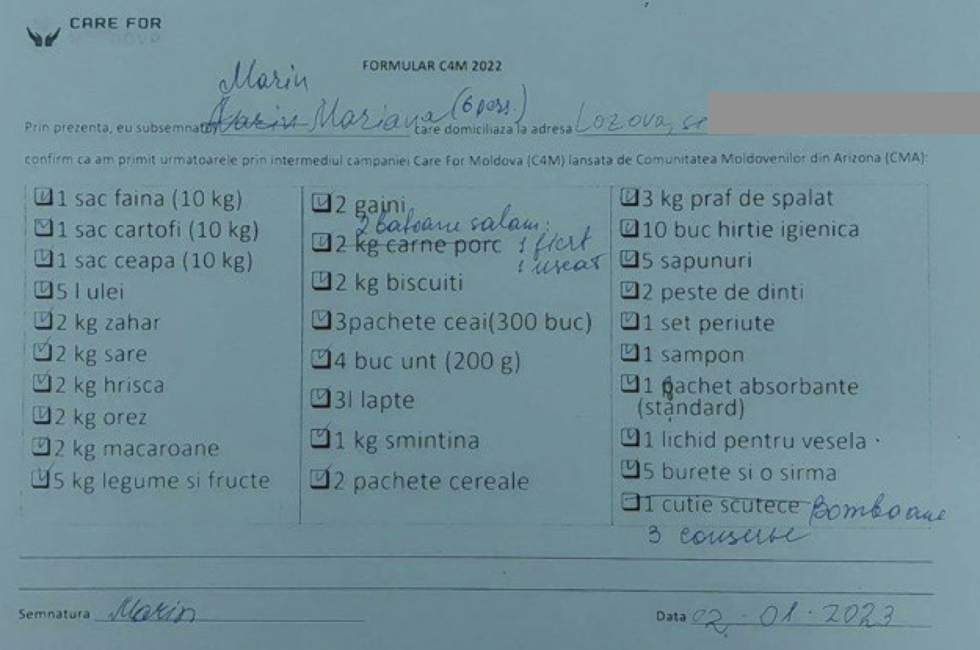 CARE FOR
MOLDOVA
FORMULAR C4M 2022
Marin
Prin prezenta, eu subsemnatul Marin Mariana (6 pers.) care domiciliaza la adresa Lozova,
confirm ca am primit urmatoarele prin intermediul campaniei Care For Moldova (C4M) lansata de Comunitatea Moldovenilor din Arizona (CMA):
1 sac faina (10 kg)
1 sac cartofi (10 kg)
1 sac ceapa (10 kg)
5 l ulei
2 kg zahar
2 kg sare
2 kg hrisca
2 kg orez
2 kg macaroane
5 kg legume si fructe
2 gaini
2 batoane salam:
2 kg carne porc 1 fiert
1 uscat
2 kg biscuiti
3pachete ceai(300 buc)
4 buc unt (200 g)
3l lapte
1 kg smintina
2 pachete cereale
3 kg praf de spalat
10 buc hirtie igienica
5 sapunuri
2 peste de dinti
1 set periute
1 sampon
1 pachet absorbante
(standard)
1 lichid pentru vesela
5 burete si o sirma
1 cutie scutece Bomboane
3 conserve
Semnatura Marin
Data 02.01.2023